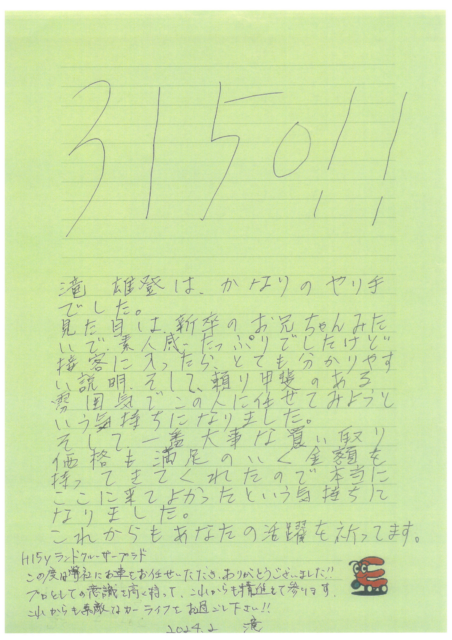 3150!!
滝 雄登は、かなりのやり手
でした。
見た目は、新卒のお兄ちゃんみた
いで、素人感たっぷりでしたけど
接客に入ったら、とても分かりやす
い説明、そして、頼り甲斐のある
雰囲気でこの人に任せてみようと
いう気持ちになりました。
そして、一番大事な買い取り
価格も満足のいく金額を
持ってきてくれたので本当に
ここに来てよかったという気持ちに
なりました。
これからもあなたの活躍を祈ってます。
H15y ランドクルーザープラド
この度は弊社にお車をお任せいただき、ありがとうございました!!
プロとしての意識を高く持って、これからも精進して参ります。
これからも素敵なカーライフをお過ごし下さい!!
2024.2 滝